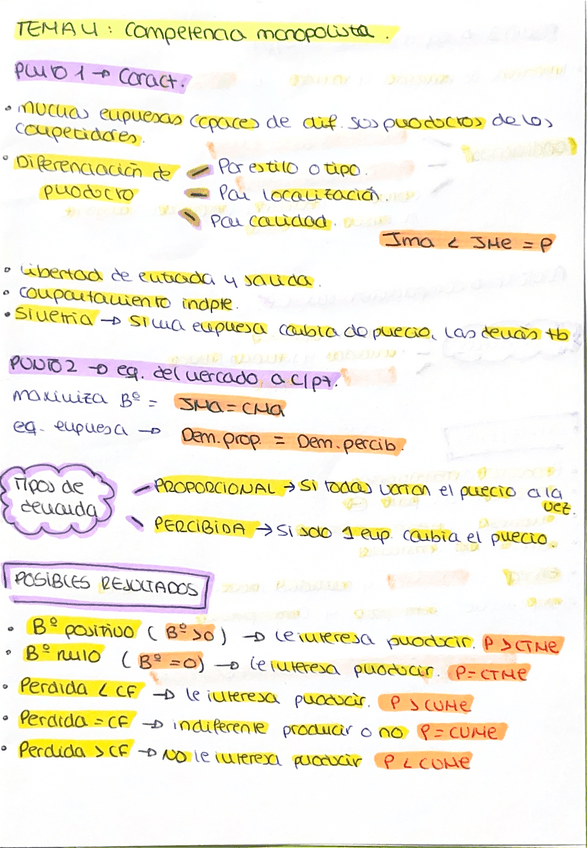 TEMA 4: Competencia monopolista.
PUNTO 1 → Caract.
• Muchas empresas capaces de dif. sus productos de los
competidores.
• Diferenciación de
producto
— Por estilo o tipo.
— Por localización.
— Por calidad.
IMa < IMe = P
• libertad de entrada y salida.
• comportamiento indpte.
• Simetría → Si una empresa cambia de precio, las demás tb
PUNTO 2 → eq. del mercado, a c/pz.
Maximiza Bº = IMa = CMa
eq. empresa → Dem. prop. = Dem. percib.
Tipos de
demanda
— PROPORCIONAL → Si todas varían el precio a la
vez.
— PERCIBIDA → Si solo 1 emp. cambia el precio.
POSIBLES RESULTADOS
• Bº positivo (Bº>0) → le interesa producir. P > CTMe
• Bº nulo (Bº=0) → le interesa producir. P= CTMe
• Perdida < CF → le interesa producir. P > CVMe
• Perdida = CF → indiferente producir o no P = CVMe
• Perdida > CF → NO le interesa producir P < CVMe